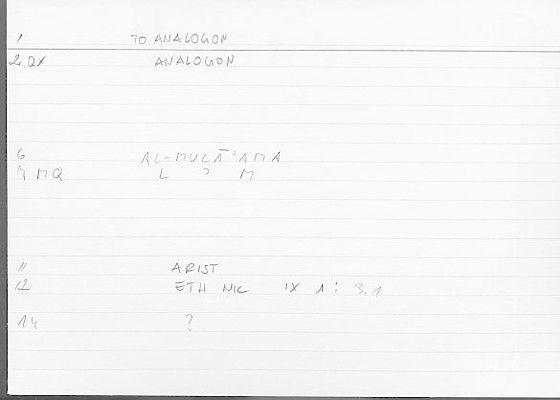 1 TO ANALOGON
2 QX ANALOGON
6 AL-MULĀʾAMA
7 MQ L ʾ M
11 ARIST
12 ETH NIC IX 1: 3.1
14 ?